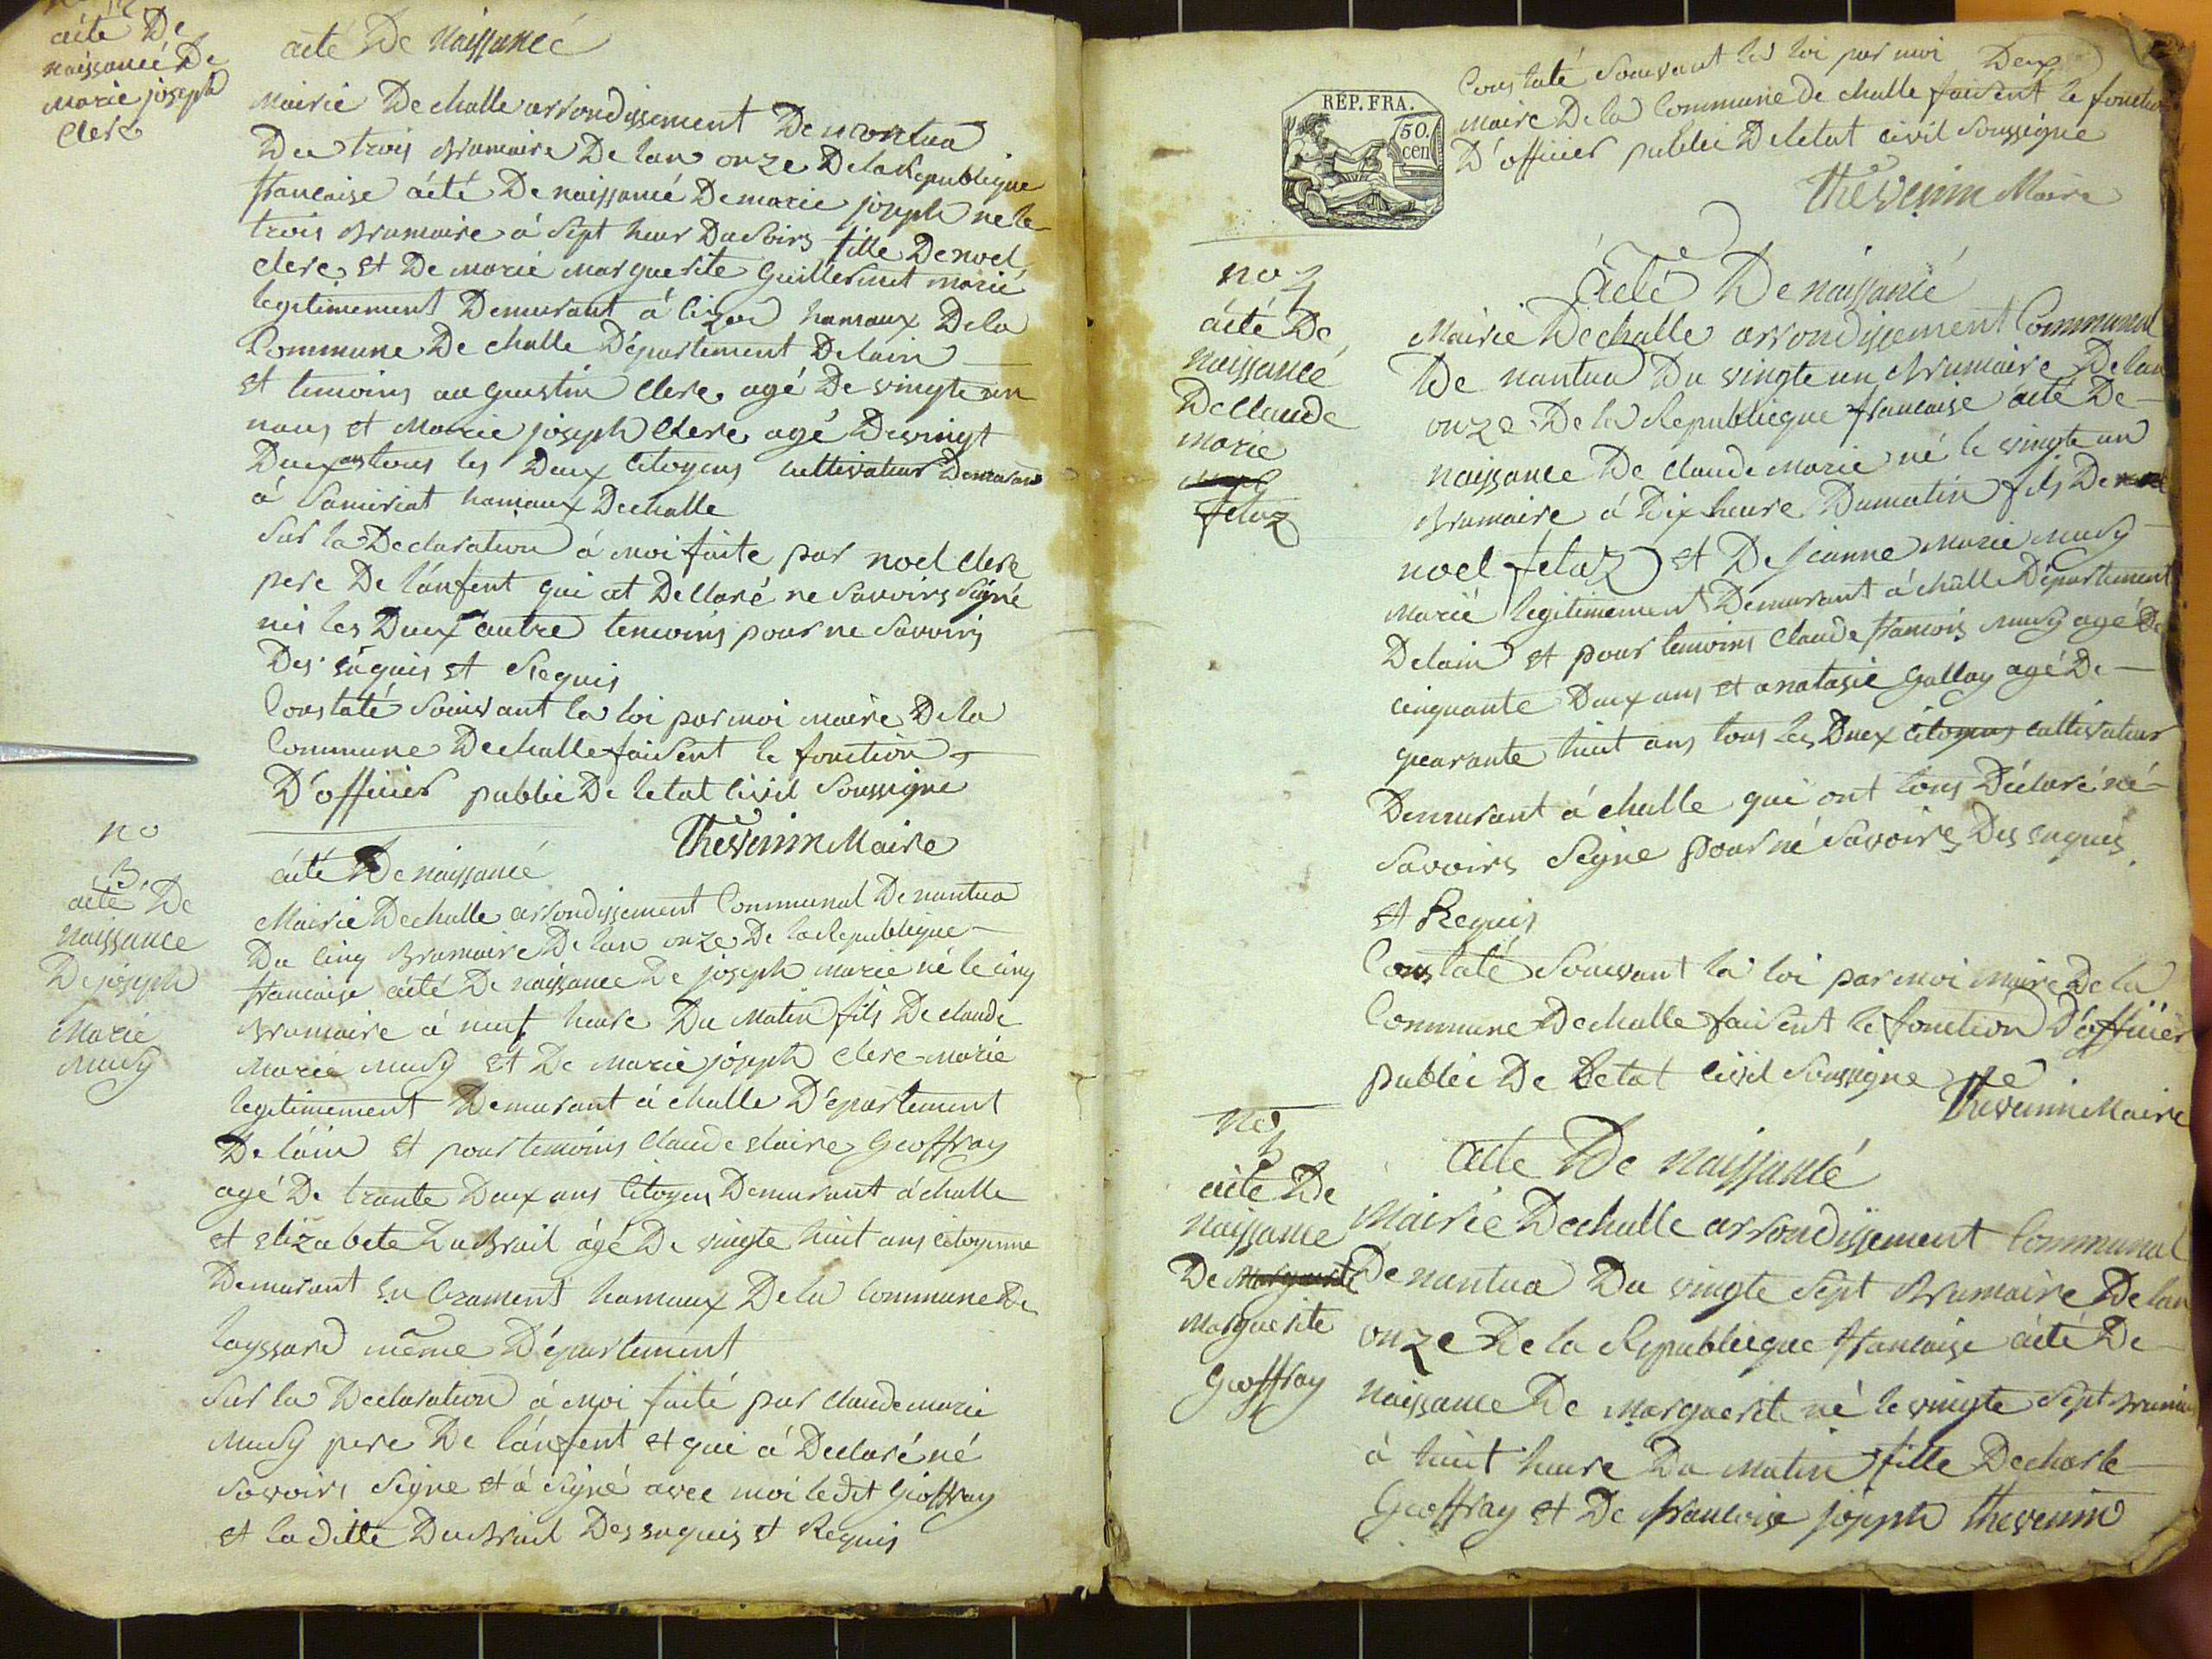 acté De
naissancé De
Marie joseph
Clerc
acté De Naissancé
Mairie De challe arrondissement De nantua
Du trois Brumaire De lan onze De la Republique
francaise acté De naissancé De marie joseph né le
trois Brumaire á sept heur Du Soirs fille De noel
clerc et De marié Marguerite Guillermet marié
legitimement Demurant á lizou hamaux De la
Commune De challe Département Delain
et temoins auguestin clerc agé De vingte un
nous et Marie joseph Clerc agé De vingt
Deux ans tous les Deux Citoyens cultivateur Demurans
á Samiriat hamaux De challe
Sur la Declaration á moi faite par noel clerc
pere De lánfent qui at Dellaré ne Savoirs Signé
nis les Deux autre temoins pour ne Savoirs
Des énquis et Requis
Constaté Souivant la loi par moi maire De la
Commune De challe faisent le fonction
D'officier public De letat Civil Soussigne
Thevenin Maire
no
3.
acté De
naissance
De joseph
Marie
Musy
acté De naissancé
Mairie De challe arrondissement Communal De nantua
Du Cinq Brumaire De lan onze De la Republique
francaise acté De naissance De joseph marie né le cinq
Brumaire á neuf heure Du Matin fils De claude
Marié Musy et De Marie joseph clerc marié
legitimement Demurant á challe Département
De láin et pour temoins Claude claire Geoffray
agé De trante Deux ans Citoyen Demurant á challe
et elizabete Dubruil ágé De vingte huit ans citoyenne
Demurant en Crament hamaux De la Commune De
layssard même Département
Sur la Declaration á moi faité par claude marie
Musy pere De lánfent et qui á Declaré né
Savoirs Signe et á signé avec moi ledit Geoffray
et la ditte Dubruil Des enquis et Requis
REP. FRA.
50.
cen
Constaté Souivant les loi par moi
maire De la Commune De challe faisent le fonction
D'officier public De letat civil Soussigne
Thevenin Maire
no 4
acté De
naissancé
De Claude
Marie
felaz
Acté De naissancé
Mairie De challe arrondissement Communal
De nantua Du vingte un Brumaire De lan
onze De la Republicque francaise acté De
naissance De claude Marie né le vingte un
Brumaire á Dix heure Du matin fils De
noel felaz et De jeanne Marie Musy
Marié legitimement Demurant á challe Département
Delain et pour temoins Claude francois Musy agé De
cinquante Deux ans et anatasie Gallay agé De
quarante huit ans tous les Deux citoyens cultivateur
Demurant á challe qui ont tous Déclaré né
Savoirs Signe pour né Savoirs Des enquis
et Requis
Constaté Souivant la loi par moi Maire De la
Commune De challe faisent le fonction D'officier
public De letat Civil Soussigne
Thevenin Maire
no
5
acté De
naissance
De Marguerite
Marguerite
Geoffray
acte De naissancé
Mairié De challe arrondissement Communal
De nantua Du vingte Sept Brumaire De lan
onze De la Republicque francaise acté De
naissance De Marguerite né le vingte Sept Brumaire
á huit heure Du Matin fille De charle
Geoffray et De francoise joseph thevenin